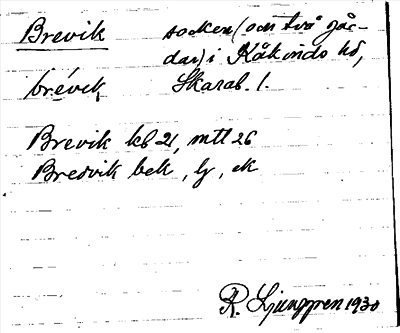 Brevik socken (och två går-
dar) i Kåkinds hd,
brévek Skarab. l.
Brevik kb 21, mtl 26
Bredvik bek, lj, ek
R. Ljunggren 1930